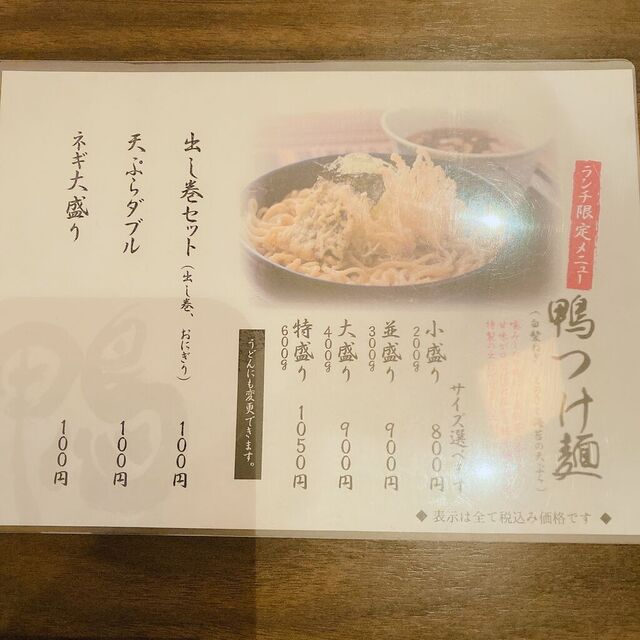 ランチ限定メニュー
鴨つけ麺
サイズ選べます
小盛り 200g 800円
並盛り 300g 900円
大盛り 400g 900円
特盛り 600g 1050円
うどんにも変更できます。
出し巻セット(出し巻、おにぎり) 100円
天ぷらダブル 100円
ネギ大盛り 100円
◆ 表示は全て税込み価格です ◆
鴨